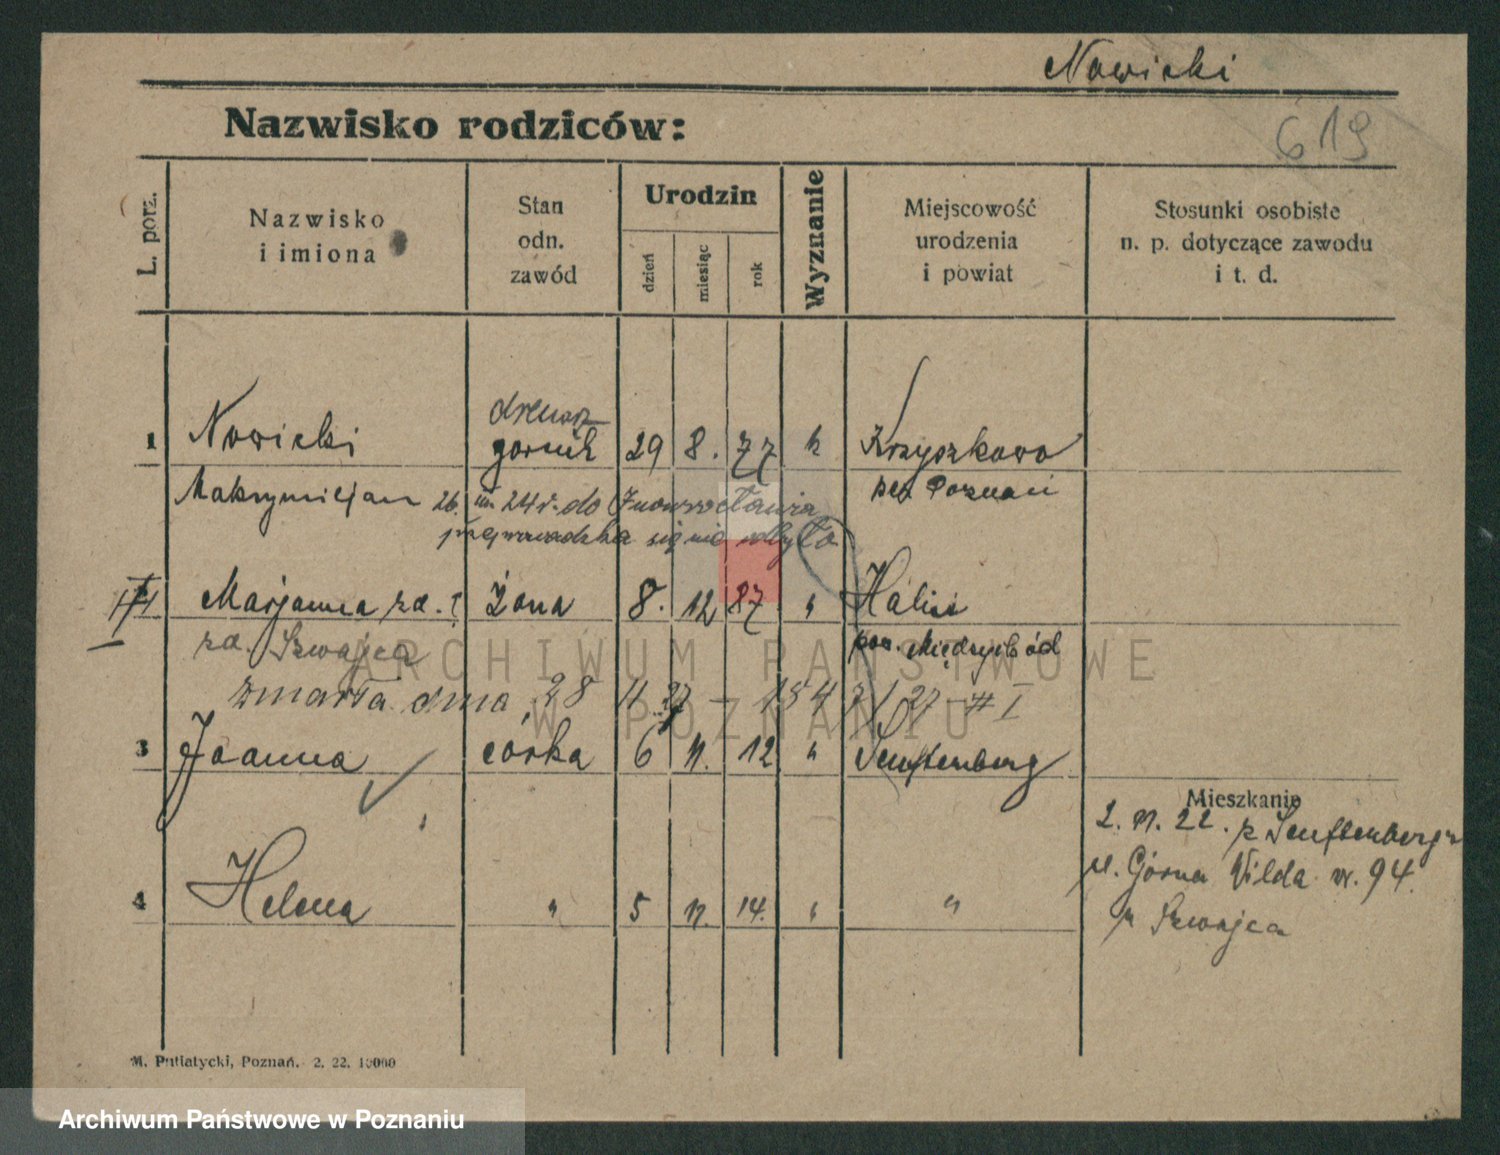 Nowicki
Nazwisko rodziców:
619
L. porz.
Nazwisko
i imiona
Stan
odn.
zawód
Urodzin
dzień
miesiąc
rok
Wyznanie
Miejscowość
urodzenia
i powiat
Stosunki osobiste
n. p. dotyczące zawodu
i t. d.
1 Nowicki górnik 29 8. 77 k Krzyszkowo
Maksymiljan pow. Poznań
24 r. do Inowrocławia
przeprowadzka się nie odbyła
Marjanna zd. żona 8. 12 87 " Halin
zd. Szwajca pow. Międzychód
zmarła dnia 28 11 27 - 1547/27 # I
3 Joanna córka 6 11. 12 " Senftenberg
Mieszkanie
2. 11. 22. z Senftenberg
ul. Górna Wilda nr. 94.
p Szwajca
4 Helena " 5 11. 14. " "
M. Putiatycki, Poznań. 2. 22. 10000
ARCHIWUM PAŃSTWOWE
W POZNANIU
Archiwum Państwowe w Poznaniu